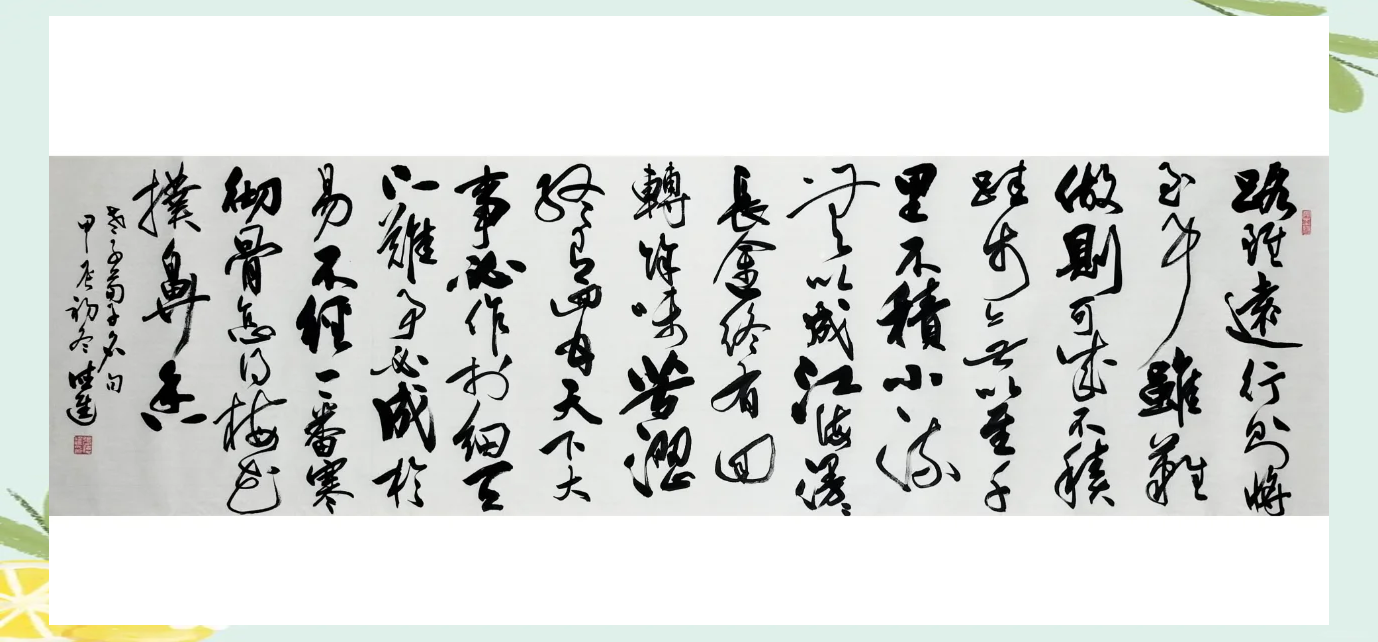 路雖遠行則將
至事雖難
做則可成不積
跬步無以至千
里不積小流
無以成江海漫漫
長途終有回
轉餘味苦澀
終有回甘天下大
事必作於細天
下難事必成於
易不經一番寒
徹骨怎得梅花
撲鼻香
老子荀子名句
甲辰初冬